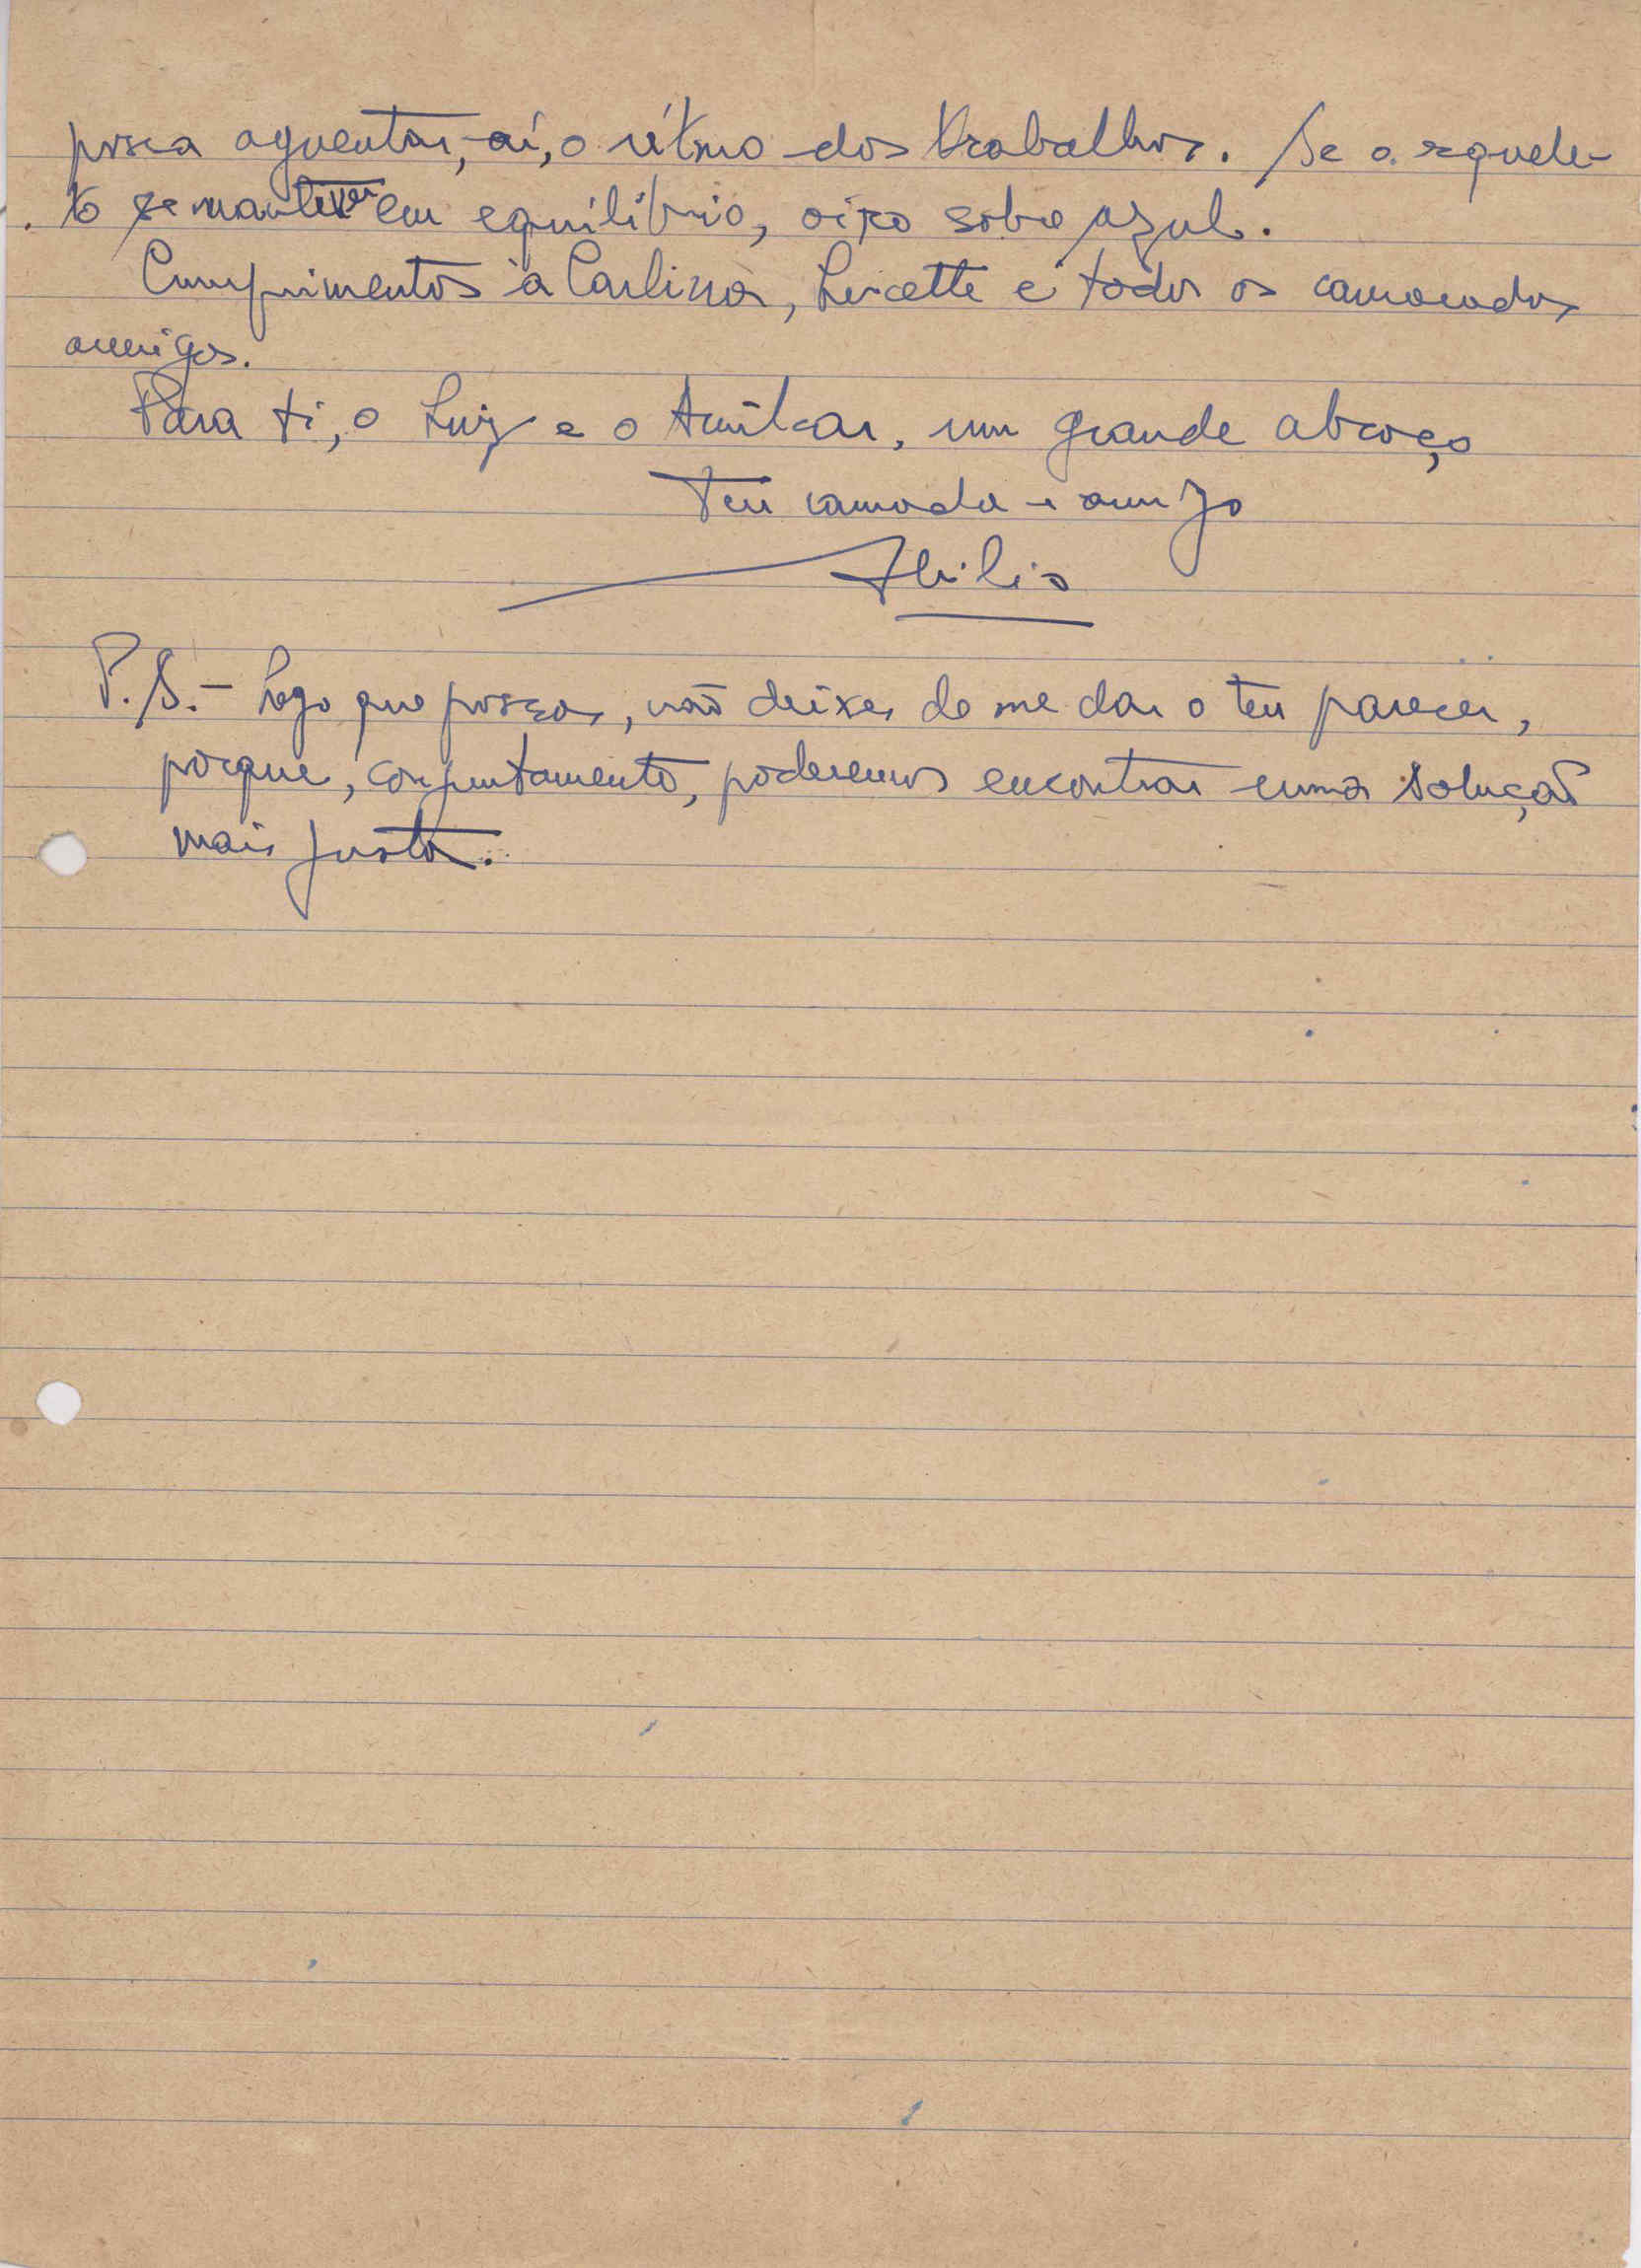 possa aguentar, aí, o rítmo dos trabalhos. Se o esquele-
to se mantiver em equilíbrio, oiro sobre azul.
Cumprimentos à Carlina, Lucette e todos os camaradas
amigos.
Para ti, o Luiz e o Amílcar, um grande abraço
Teu camada e amigo
Abílio
P.S. - Logo que possas, não deixes de me dar o teu parecer,
porque, conjuntamente, poderemos encontrar uma solução
mais justa.